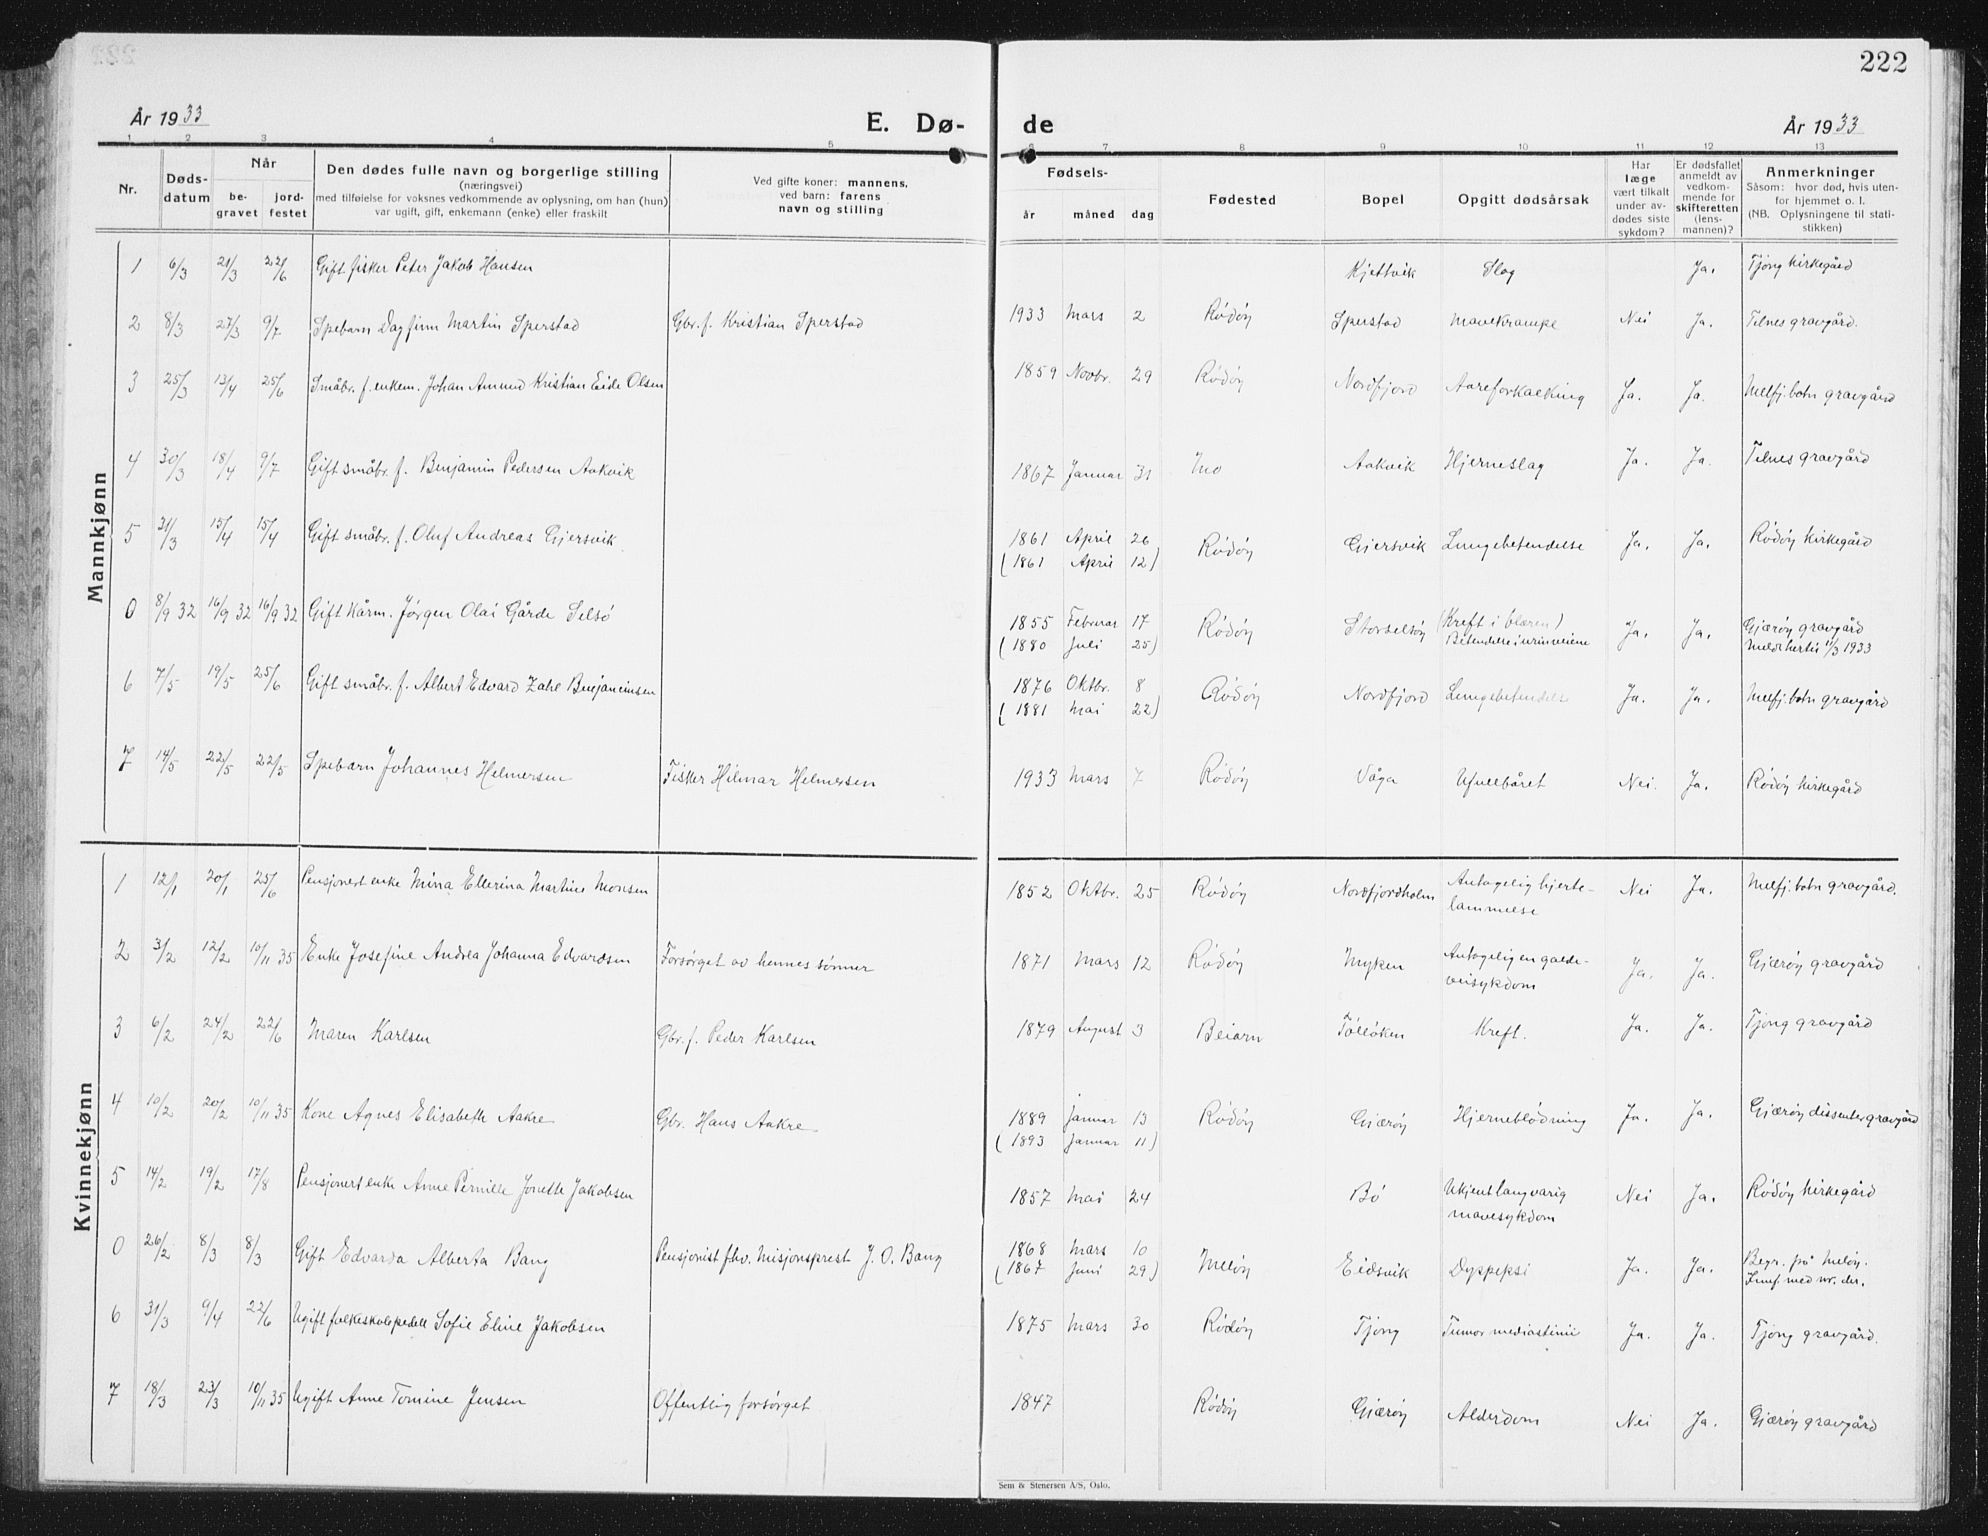 222
År 1933
E. Dø-
de
År 1933
1 2 3 4 5 6 7 8 9 10 11 12 13
Nr.
Døds-
datum
Når
be-
gravet
jord-
festet
Den dødes fulle navn og borgerlige stilling
(næringsvei)
med tilføielse for voksnes vedkommende av oplysning, om han (hun)
var ugift, gift, enkemann (enke) eller fraskilt
Ved gifte koner: mannens,
ved barn: farens
navn og stilling
Fødsels-
år måned dag
Fødested
Bopel
Opgitt dødsårsak
Har
læge
vært tilkalt
under av-
dødes siste
sykdom?
Er dødsfallet
anmeldt av
vedkom-
mende for
skifteretten
(lens-
mannen)?
Anmerkninger
Såsom: hvor død, hvis uten-
for hjemmet o. l.
(NB. Oplysningene til stati-
stikken)
Mannkjønn
1 6/3 21/3 22/6 Gift fisker Peter Jakob Hansen Kjettvik Slag Ja. Tjong kirkegård
2 8/3 27/3 9/7 Spebarn Dagfinn Martin Sperstad Gbr. f. Kristian Sperstad 1933 Mars 2 Rödöy Sperstad Mavekrampe Nei Ja. Telnes gravgård.
3 25/3 13/4 25/6 Småbr. f. enkem. Johan Amund Kristian Eide Olsen 1859 Novbr. 29 Rödöy Nordfjord Aareforkalkning Ja. Ja. Melfj.botn gravgård
4 30/3 18/4 9/7 Gift småbr. f. Benjamin Pedersen Aakvik 1867 Januar 31 Mo Aakvik Hjerneslag Ja. Ja. Telnes gravgård
5 31/3 15/4 15/4 Gift småbr. f. Oluf Andreas Gjersvik 1861 April 26 Rödöy Gjersvik Lungebetendelse Ja. Ja. Rödöy kirkegård
(1861 April 12)
0 8/9 32 16/9 32 16/9 32 Gift kårm. Jørgen Olai Gårde Selsö 1855 Februar 17 Rödöy Storselsöy (Kreft i blæren) Ja. Ja. Gjæröy gravgård
(1880 Juli 25) Betendelse i urinveiene Meldt hertil 1/3 1933
6 7/5 19/5 25/6 Gift småbr. f. Albert Edvard Zahl Benjaminsen 1876 Oktbr. 8 Rödöy Nordfjord Lungebetendelse Ja. Ja. Melfj.botn gravgård
(1881 Mai 22)
7 14/5 22/5 22/5 Spebarn Johannes Helmersen Fisker Hilmar Helmersen 1933 Mars 7 Rödöy Våga Ufullbåret Nei. Ja. Rödöy kirkegård
Kvinnekjønn
1 12/1 20/1 25/6 Pensjonert enke Mina Ellerina Martine Monsen 1852 Oktbr. 25 Rödöy Nordfjordholm Antagelig hjerte- Nei Ja. Melfj.botn gravgård.
lammelse
2 3/2 12/2 10/11 35 Enke Josefine Andrea Johanna Edvardsen Forsørget av hennes sønner 1871 Mars 12 Rödöy Myken Antagelig en galde- Ja. Ja. Gjæröy gravgård
veisykdom
3 6/2 24/2 22/6 Maren Karlsen Gbr. f. Peder Karlsen 1879 August 3 Beiarn Töllöken Kreft. Ja. Ja. Tjong gravgård
4 10/2 20/2 10/11 35 Kone Agnes Elisabeth Aakre Gbr. Hans Aakre 1889 Januar 13 Rödöy Gjæröy Hjerneblödning Ja. Ja. Gjæröy dissentergravgård
(1893 Januar 11)
5 14/2 19/2 17/8 Pensjonert enke Anne Pernille Jonette Jakobsen 1857 Mai 24 Bö Ukjent langvarig Nei Ja. Rödöy kirkegård
mavesykdom
0 26/2 8/3 8/3 Gift Edvarda Alberta Bang Pensjonist fhv. misjonsprest J. O. Bang 1868 Mars 10 Melöy Eidsvik Dyppepsi Ja. Ja. Begr. på Melöy.
(1867 Juni 29) Innf. med nr. der.
6 31/3 9/4 22/6 Ugift folkeskolepedell Sofie Eline Jakobsen 1875 Mars 30 Rödöy Tjong Tumor mediastinii Ja. Ja. Tjong gravgård.
7 18/3 23/3 10/11 35 Ugift Anne Tomine Jensen Offentlig forsørget 1847 Rödöy Gjæröy Alderdom Nei Ja. Gjæröy gravgård
Sem & Stenersen A/S, Oslo.